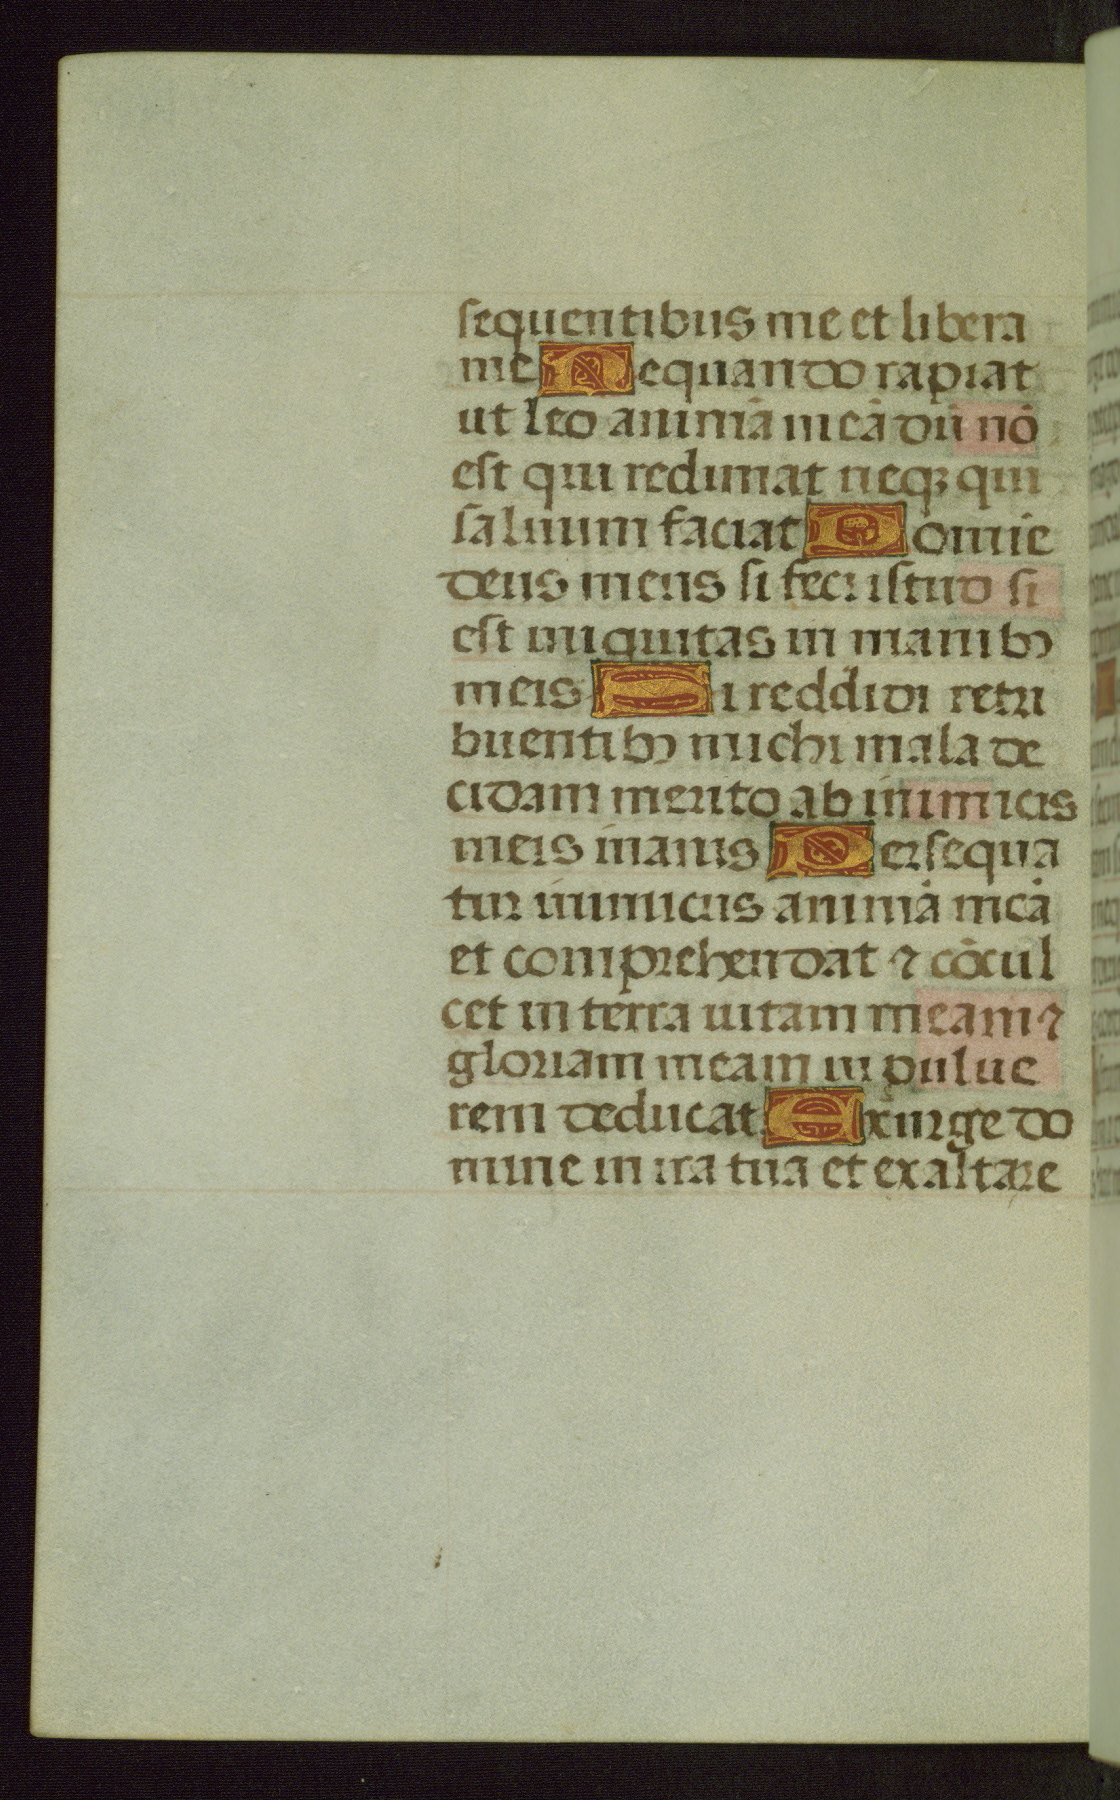 sequentibus me et libera
me Nequando rapiat
ut leo animā meā dū nō
est qui redimat neqꝫ qui
saluum faciat Domie
deus meus si feci istud si
est iniquitas in manibꝫ
meis Si reddidi retri
buentibꝫ michi mala de
cidam merito ab inimicis
meis inanis Persequa
tur inimicus animā meā
et comprehendat ⁊ cōcul
cet in terra uitam meam ⁊
gloriam meam in pulue
rem deducat Exurge do
mine in ira tua et exaltare